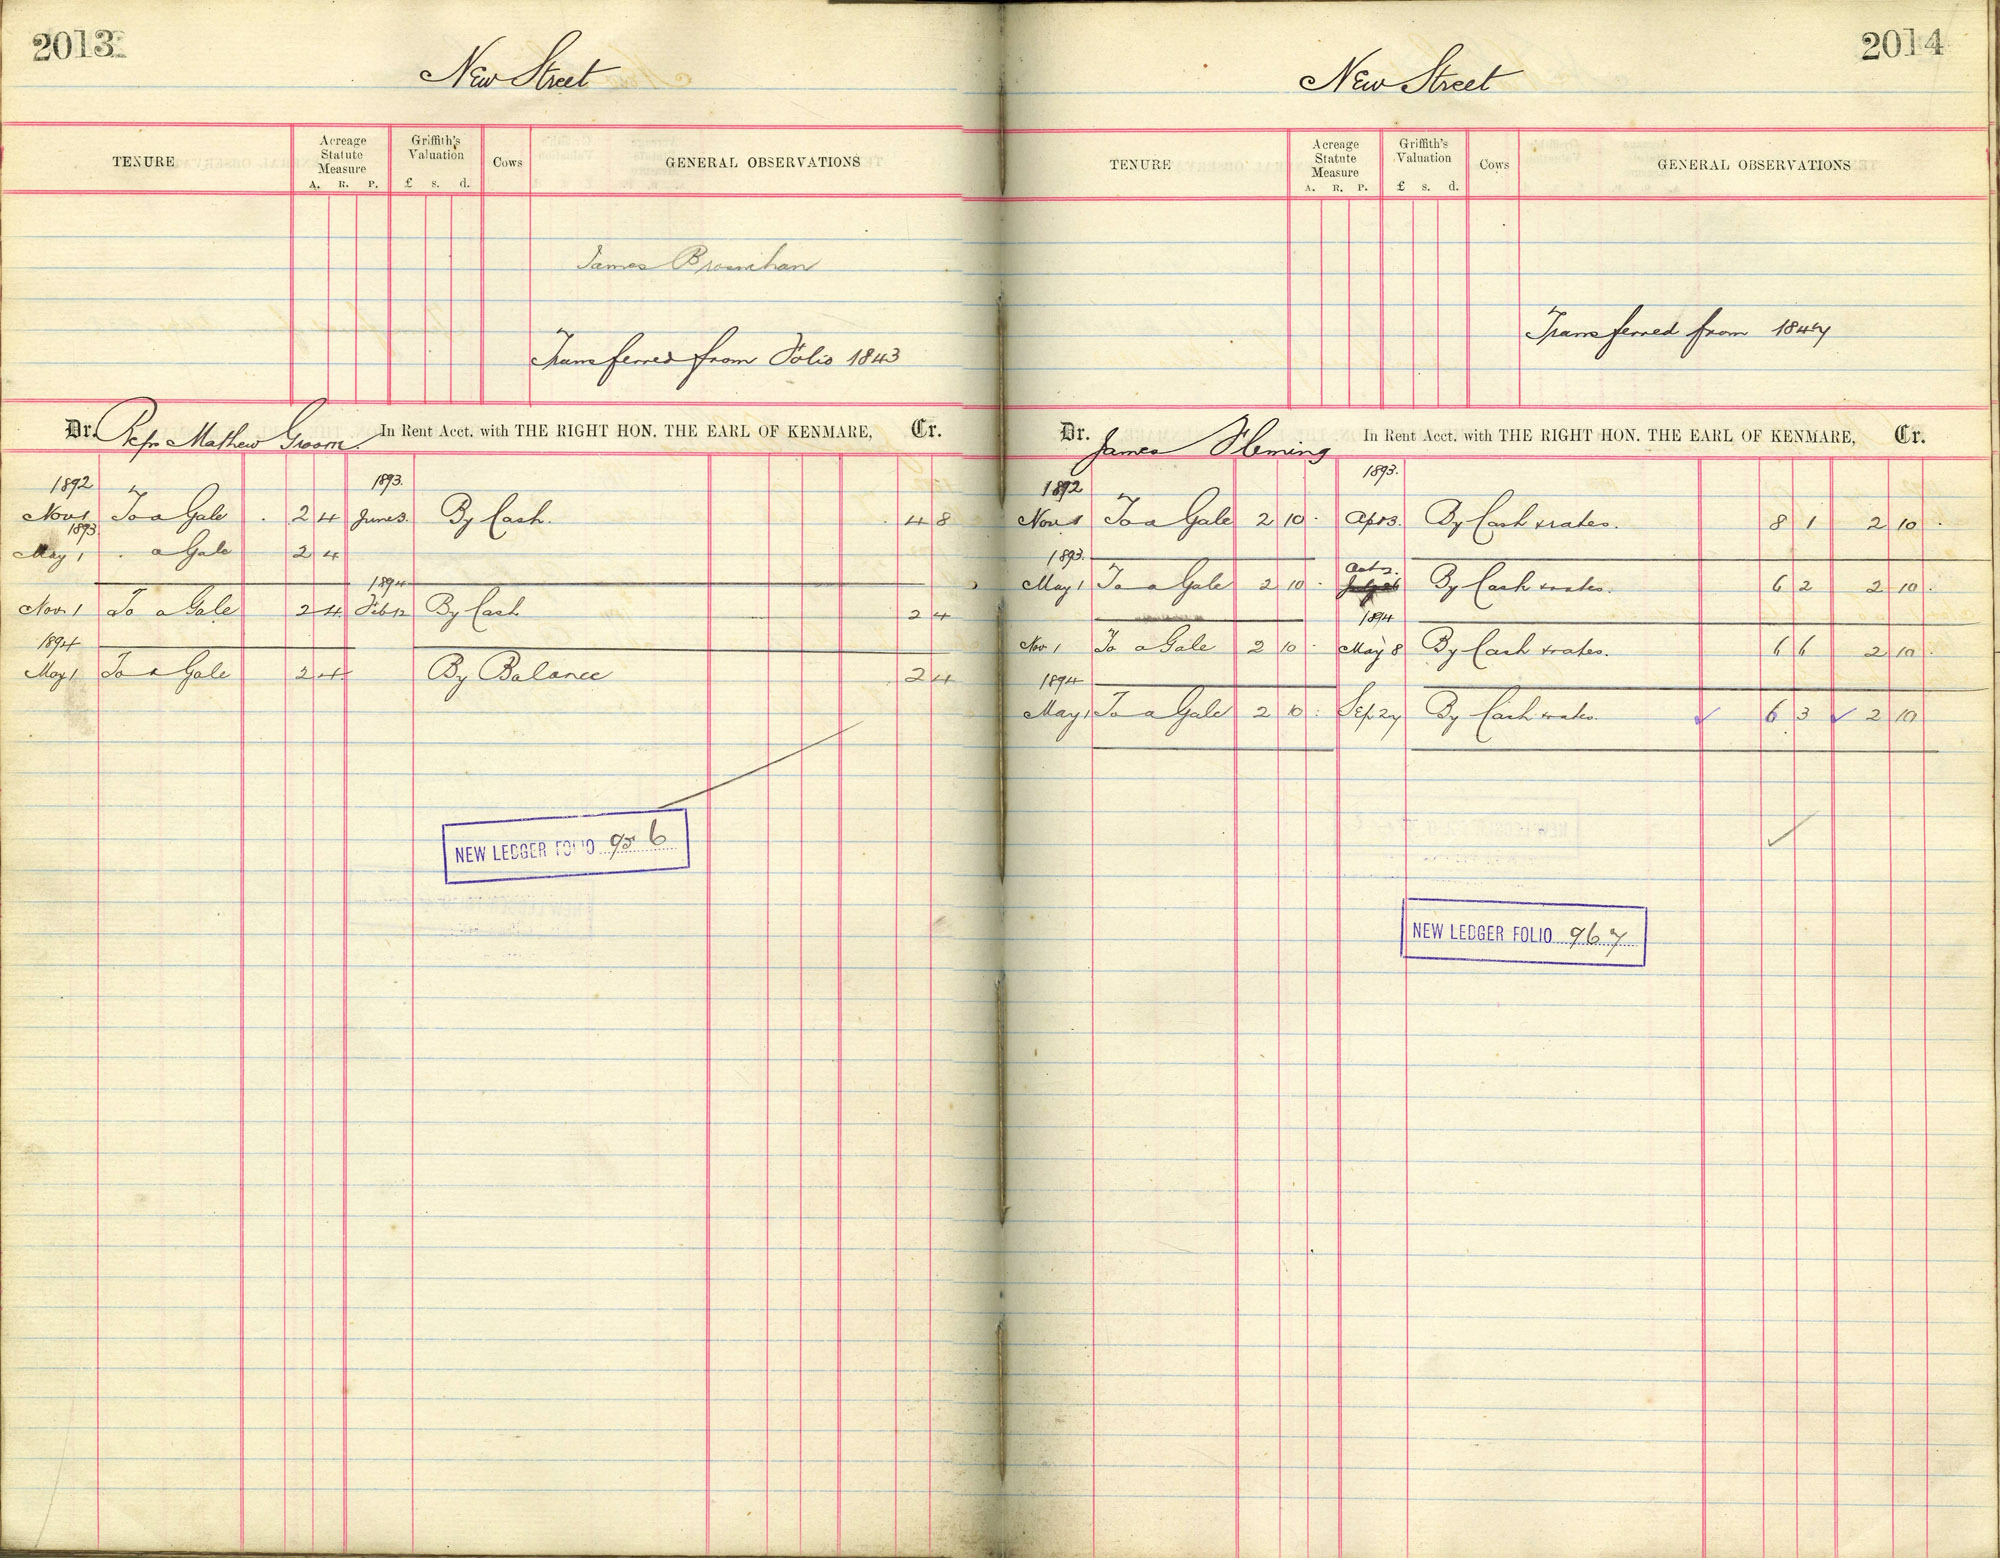 2013
New Street
TENURE
Acreage Statute Measure
A. R. P.
Griffith's Valuation
£ s. d.
Cows
GENERAL OBSERVATIONS
James Brosnihan
Transferred from Folio 1843
Dr. Reps Mathew Groom In Rent Acct. with THE RIGHT HON. THE EARL OF KENMARE, Cr.
1892 1893.
Nov 1 To a Gale 2 4 June 3. By Cash. 4 8
1893
May 1 a Gale 2 4
1894
Nov. 1 To a Gale 2 4 Feb 12 By Cash 2 4
1894
May 1 To a Gale 2 4 By Balance 2 4
NEW LEDGER FOLIO 956
2014
New Street
TENURE
Acreage Statute Measure
A. R. P.
Griffith's Valuation
£ s. d.
Cows
GENERAL OBSERVATIONS
Transferred from 1847
Dr. James Fleming In Rent Acct. with THE RIGHT HON. THE EARL OF KENMARE, Cr.
1892 1893.
Nov 1 To a Gale 2 10 Apr 3. By Cash & rates. 8 1 2 10
1893.
May 1 To a Gale 2 10 Oct 2. By Cash & rates. 6 2 2 10
1894
Nov 1 To a Gale 2 10 May 8 By Cash & rates. 6 6 2 10
1894
May 1 To a Gale 2 10 Sep 27 By Cash & rates. 6 3 2 10
NEW LEDGER FOLIO 967